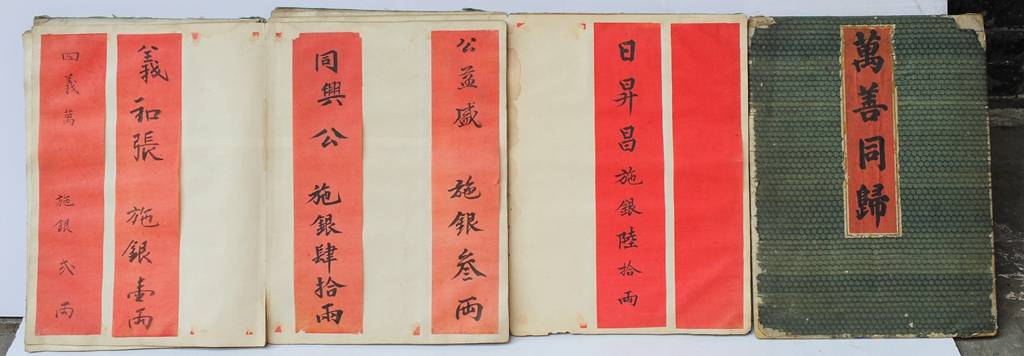 萬善同歸
日昇昌 施銀陸拾兩
公益盛 施銀叁兩
同興公 施銀肆拾兩
義和張 施銀壹兩
四義萬 施銀弍兩